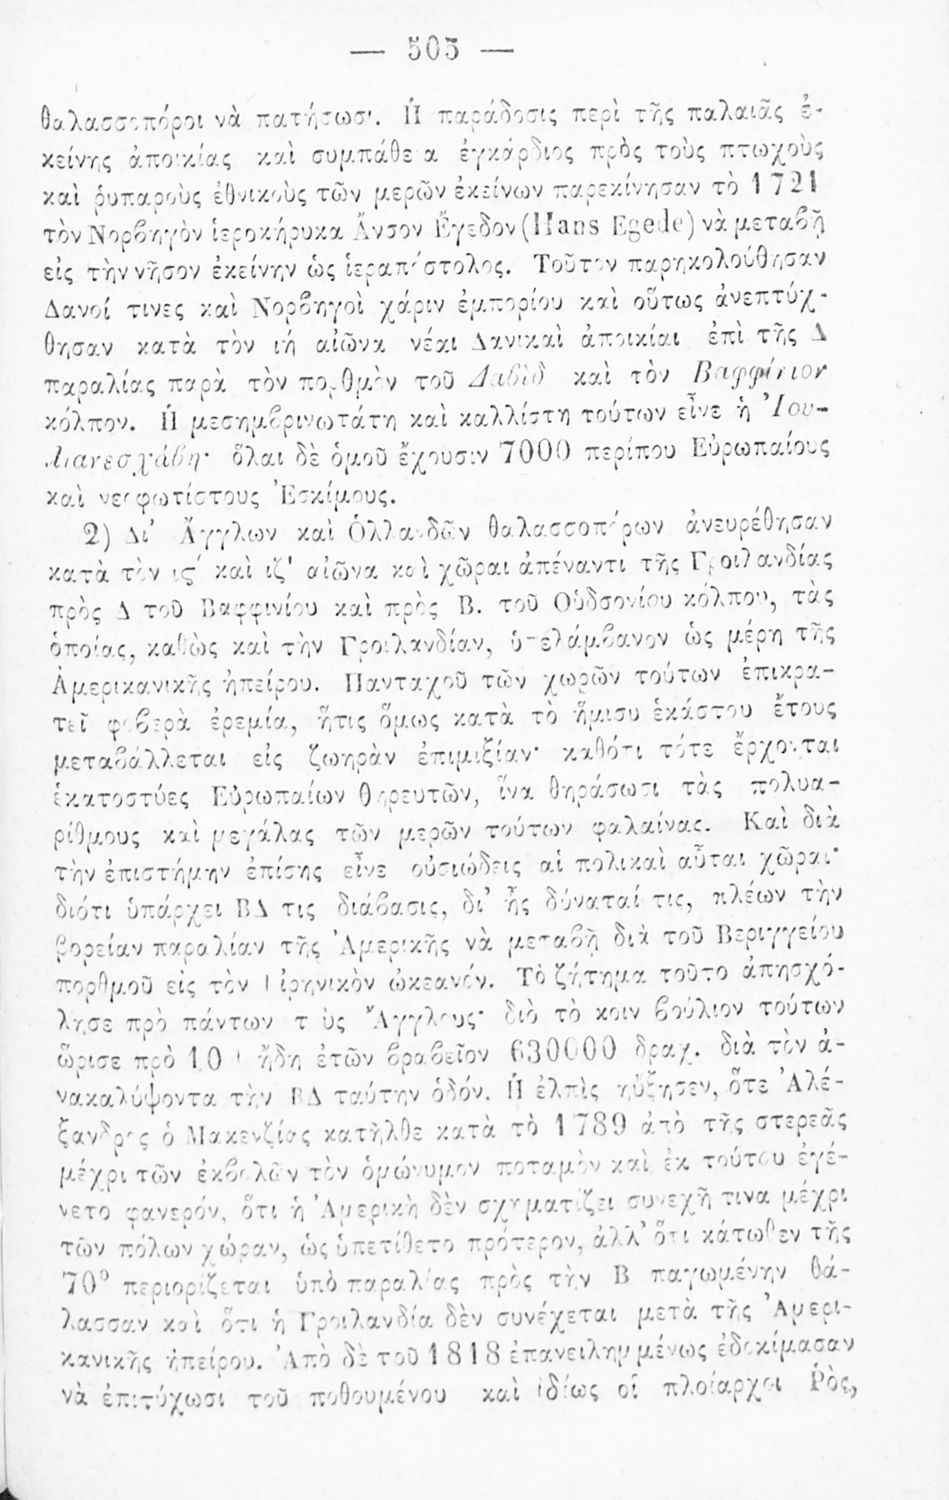 — 505 —
θαλασσοπόροι νὰ πατήσωσι. Ἡ παράδοσις περὶ τῆς παλαιᾶς ἐ-
κείνης ἀποικίας καὶ συμπάθεια ἐγκάρδιος πρὸς τοὺς πτωχοὺς
καὶ ῥυπαροὺς ἐθνικοὺς τῶν μερῶν ἐκείνων παρεκίνησαν τὸ 1721
τὸν Νορβηγὸν ἱεροκήρυκα Ἄνσον Ἔγεδον (Hans Egede) νὰ μεταβῇ
εἰς τὴν νῆσον ἐκείνην ὡς ἱεραπόστολος. Τοῦτον παρηκολούθησαν
Δανοί τινες καὶ Νορβηγοὶ χάριν ἐμπορίου καὶ οὕτως ἀνεπτύχ-
θησαν κατὰ τὸν ιή αἰῶνα νέαι Δανικαὶ ἀποικίαι ἐπὶ τῆς Δ
παραλίας παρὰ τὸν πορθμὸν τοῦ Δαβὶδ καὶ τὸν Βαφφίνιον
κόλπον. Ἡ μεσημβρινωτάτη καὶ καλλίστη τούτων εἶνε ἡ Ἰου-
λιανεσχάβη· ὅλαι δὲ ὁμοῦ ἔχουσιν 7000 περίπου Εὐρωπαίους
καὶ νεοφωτίστους Ἐσκίμους.
2) Δι' Ἄγγλων καὶ Ὁλλανδῶν θαλασσοπόρων ἀνευρέθησαν
κατὰ τὸν ις' καὶ ιζ' αἰῶνα καὶ χῶραι ἀπέναντι τῆς Γροιλανδίας
πρὸς Δ τοῦ Βαφφινίου καὶ πρὸς Β. τοῦ Οὑδσονίου κόλπου, τὰς
ὁποίας, καθὼς καὶ τὴν Γροιλανδίαν, ὑπελάμβανον ὡς μέρη τῆς
Ἀμερικανικῆς ἠπείρου. Πανταχοῦ τῶν χωρῶν τούτων ἐπικρα-
τεῖ φοβερὰ ἐρεμία, ἥτις ὅμως κατὰ τὸ ἥμισυ ἑκάστου ἔτους
μεταβάλλεται εἰς ζωηρὰν ἐπιμιξίαν· καθότι τότε ἔρχονται
ἑκατοστύες Εὐρωπαίων θηρευτῶν, ἵνα θηράσωσι τὰς πολυα-
ρίθμους καὶ μεγάλας τῶν μερῶν τούτων φαλαίνας. Καὶ διὰ
τὴν ἐπιστήμην ἐπίσης εἶνε οὐσιώδεις αἱ πολικαὶ αὗται χῶραι·
διότι ὑπάρχει ΒΔ τις διάβασις, δι' ἧς δύναταί τις, πλέων τὴν
βορείαν παραλίαν τῆς Ἀμερικῆς νὰ μεταβῇ διὰ τοῦ Βεριγγείου
πορθμοῦ εἰς τὸν Εἰρηνικὸν ὠκεανόν. Τὸ ζήτημα τοῦτο ἀπησχό-
λησε πρὸ πάντων τοὺς Ἄγγλους· διὸ τὸ κοινοβούλιον τούτων
ὥρισε πρὸ ἤδη ἐτῶν βραβεῖον 630000 δραχ. διὰ τὸν ἀ-
νακαλύψοντα τὴν ΒΔ ταύτην ὁδόν. Ἡ ἐλπὶς ηὔξησεν, ὅτε Ἀλέ-
ξανδρος ὁ Μακενζίας κατῆλθε κατὰ τὸ 1789 ἀπὸ τῆς στερεᾶς
μέχρι τῶν ἐκβολῶν τὸν ὁμώνυμον ποταμὸν καὶ ἐκ τούτου ἐγέ-
νετο φανερόν, ὅτι ἡ Ἀμερικὴ δὲν σχηματίζει συνεχῆ τινα μέχρι
τῶν πόλων χώραν, ὡς ὑπετίθετο πρότερον, ἀλλ' ὅτι κάτωθεν τῆς
70° περιορίζεται ὑπὸ παραλίας πρὸς τὴν Β παγωμένην θά-
λασσαν καὶ ὅτι ἡ Γροιλανδία δὲν συνέχεται μετὰ τῆς Ἀμερι-
κανικῆς ἠπείρου. Ἀπὸ δὲ τοῦ 1818 ἐπανειλημμένως ἐδοκίμασαν
νὰ ἐπιτύχωσι τοῦ ποθουμένου καὶ ἰδίως οἱ πλοίαρχοι Ῥὸς,